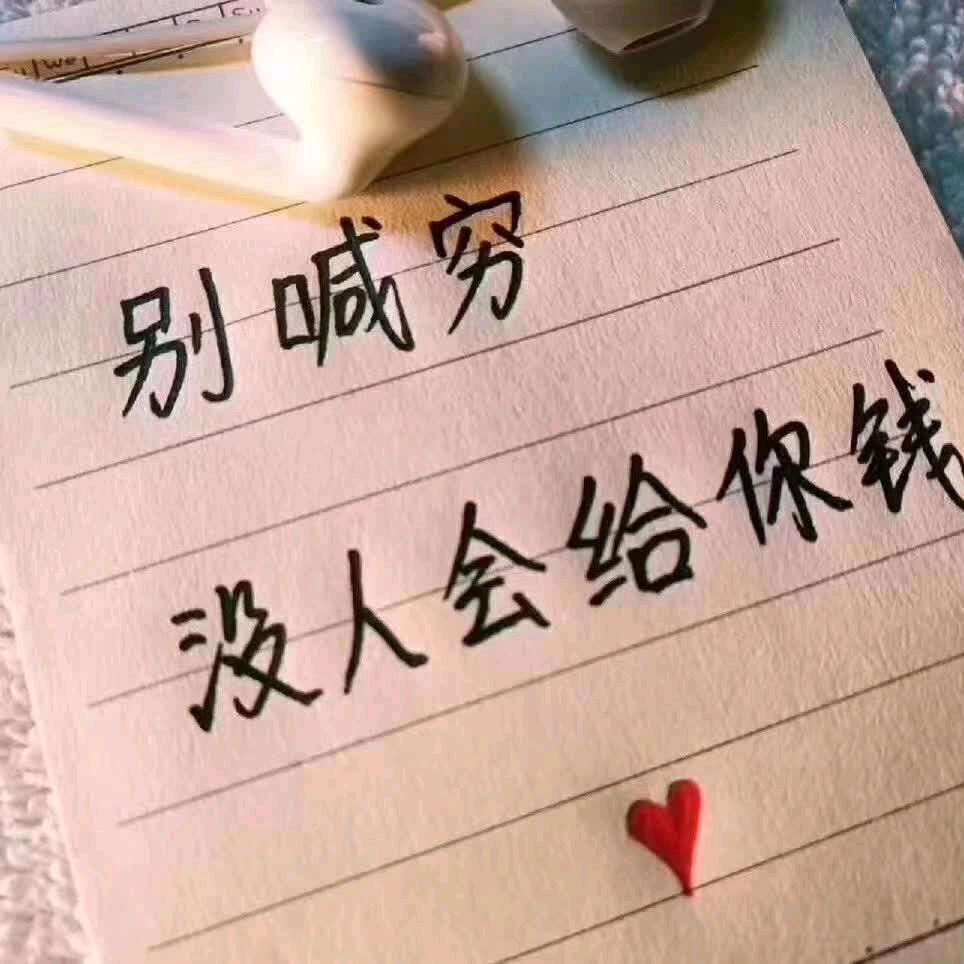 别喊穷
没人会给你钱